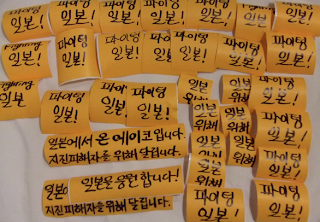 파이팅
일본!
파이팅
일본!
파이팅
일본!
파이팅
일본!
파이팅
일본!
Fighting
일본!
파이팅
일본!
파이팅
일본!
파이팅
일본!
파이팅
일본!
파이팅
일본!
파이팅
일본!
Fighting
일본
파이팅
일본!
파이팅
일본!
파이팅
일본!
일본
위해
일본
위해
파이팅
일본!
파이팅
일본!
일본에서 온 에이코입니다.
지진피해자를 위해 달립니다.
일본
위해
일본
위해
파이팅
일본!
일본을 응원합니다!
지진피해자를위해 달립니다.
파이팅
일본!
파이팅
일본!
파이팅
일본!